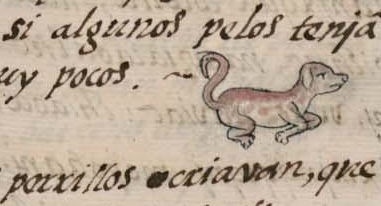 si algunos pelos tenjā
uy pocos. ~
perrillos criavan, que